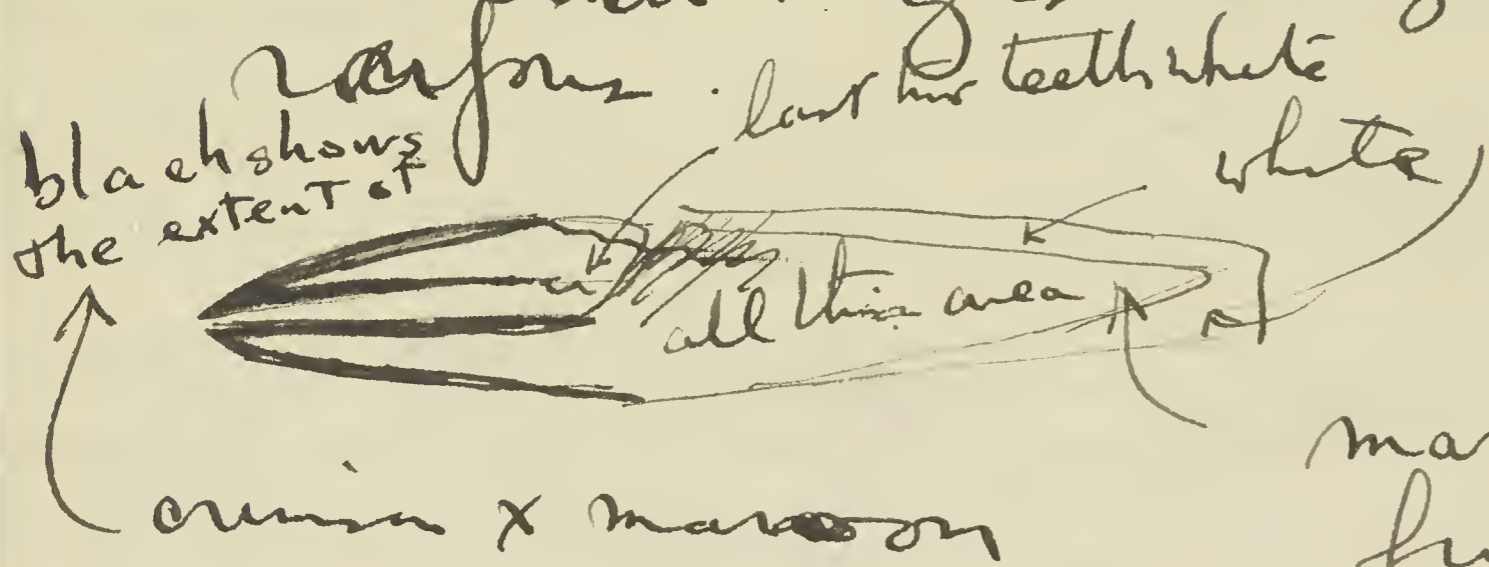 rufous.
last two teeth white
white
black shows
the extent of
all this area
crimson x maroon